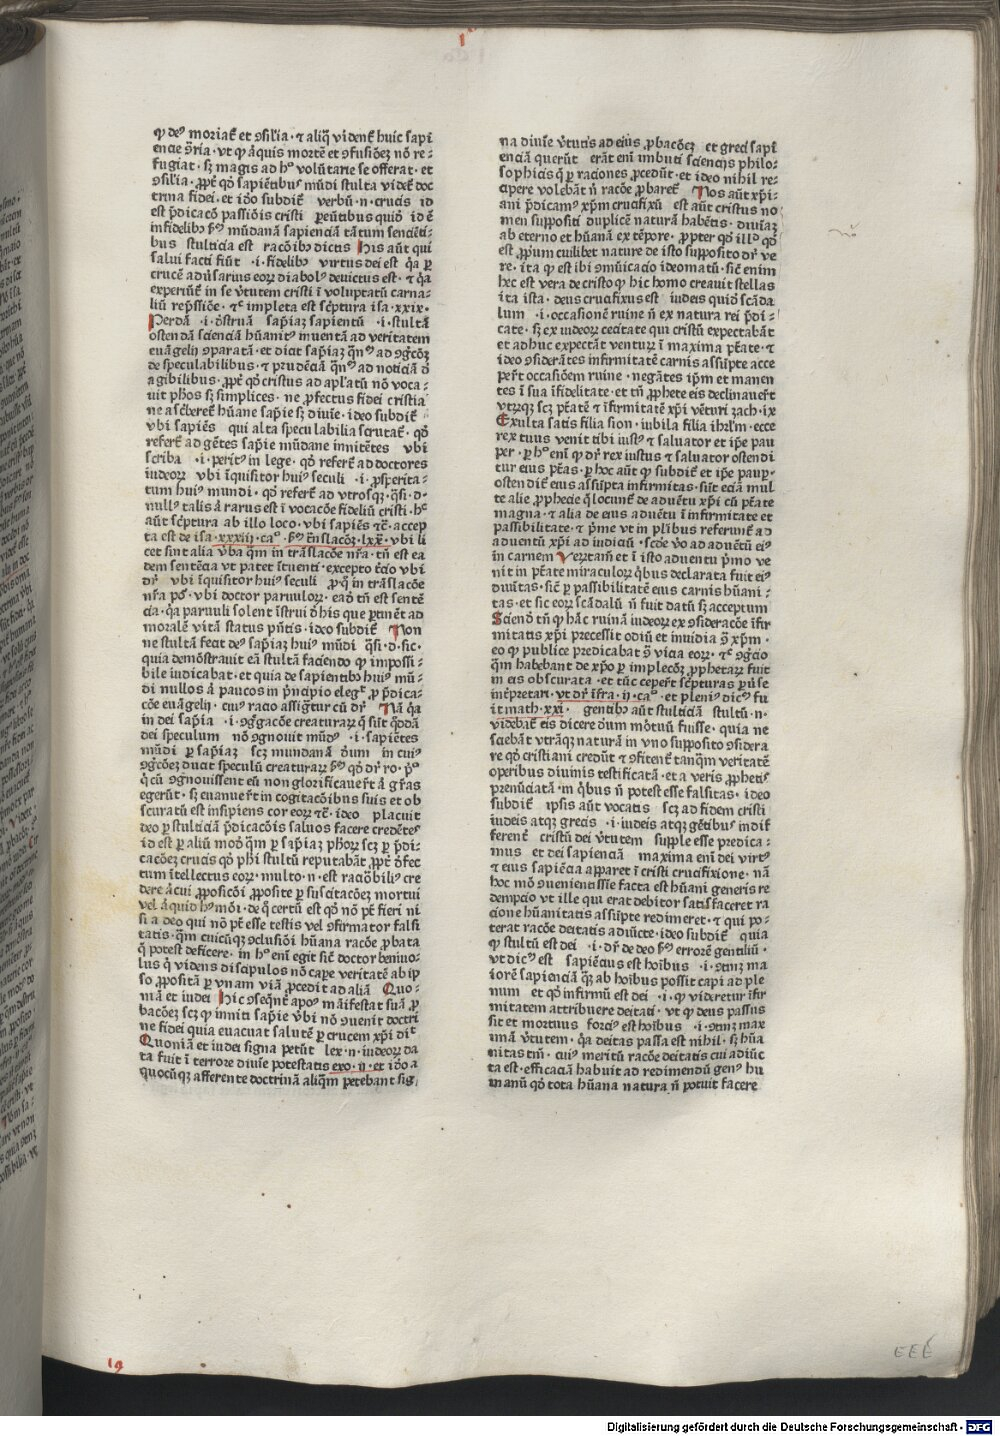 ꝙ deꝰ moriat̃ et ꝯsiĺia · ⁊ aliq̃ vident̃ huic sapi
encie ꝯ̃ria · vt ꝙ aliquis mortẽ et ꝯfusiõeꝫ nõ re⸗
fugiat · sꝫ magis ad hᵒ volũtarie se offerat · et
ꝯsiĺia · ꝓpt̃ qð sapiẽtibus mũdi stulta videt̃ doc
trina fidei · et iðo subdit̃   verbũ · n · crucis  id
est p̃dicacõ passiõis cristi   peũtibus quið  id ẽ
infidelibꝫ ẜm mũdanã sapienciã tãtum senciẽti⸗
bus  stulticia est  racõibꝫ dictis  His aũt qui
salui facti fiũt  · i · fidelibꝫ  virtus dei est  q̃a p
crucẽ aduersarius eorꝝ diabolꝰ deuictus est · ⁊ q̃a
experiũt̃ in se vt̃utem cristi ĩ voluptatũ carna⸗
liũ rep̃ssiõe · ⁊c̃ impleta est sc̃ptura isa · xxix ·
Perdã  · i · oñstrua  sap̃iaꝫ sapientũ  · i · stultã
ostendã scienciã hũanitꝰ inuentã ad veritatem
euãgelij ꝯparatã · et dicit sap̃iaꝫ q̃ꝫꝰ ad ꝯgc̃õꝫ
de speculabilibus · ⁊ prudẽciã q̃ꝫꝰ ad noticiã ð
agibilibus · ꝓpt̃ qð cristus ad apĺatũ nõ voca⸗
uit phos sꝫ simplices · ne ꝓfectus fidei cristia
ne asc̃beret̃ hũane sap̃ie sꝫ diuie · ideo subdit̃
vbi sapiẽs   qui alta speculabilia scrutat̃ · qð
refert̃ ad gẽtes sap̃ie mũdane innitẽtes   vbi
scriba   · i · peritꝰ in lege · qð refert̃ ad doctores
iudeorꝝ   vbi ĩquisitor huiꝰ seculi   · i · ꝓsperita⸗
tum huiꝰ mundi · qð refert̃ ad vtrosqꝫ · q̃si · d ·
nullꝰ talis ł rarus est ĩ vocacõe fideliũ cristi · hᵉ
aũt sc̃ptura ab illo loco · vbi sapiẽs ⁊c̃ · accep
ta est de isa · xxxiij · caᵒ · ẜm tñslacõꝫ · lxx̃ · vbi li
cet sint alia v̓ba q̃m in trãslacõe nr̃a · tñ est ea
dem sentẽcia vt patet ĩtuenti · excepto tc̃io vbi
dr̃   vbi ĩquisitor huiꝰ seculi   ꝓ q̃ in trãslacõe
nr̃a poꝰ · vbi doctor paruulorꝝ · eað tñ est sentẽ
cia · q̃a paruuli solent ĩstrui ð his que ptinẽt ad
moralẽ vitã status pñtis · ideo subdit̃   Non
ne stultã fecit deꝰ sap̃iaꝫ huiꝰ mũdi   q̃si · d · sic ·
quia demõstrauit eã stultã faciendo ꝙ impossi⸗
bile iudicabat · et quia de sapientibꝫ huiꝰ mũ⸗
di nullos ł paucos in p̃ncipio elegᵗ ꝓ p̃dica⸗
cõe euãgelij · cuiꝰ racio assig̃tur cũ dr̃   Nã q̃a
in dei sap̃ia   · i · ꝯg̃gacõe creaturarꝝ q̃ sũt q̃ddã
dei speculum   nõ ꝯgnouit mũdꝰ   · i · sapiẽtes
mũdi   p sap̃iaꝫ   scꝫ mundanã   ðum   in cuiꝰ
ꝯgc̃õeꝫ ducit speculũ creaturarꝝ ẜm qð dr̃ ro · pᵒ
q̃ cũ ꝯgnouissent eũ non glorificauer̃t ł gr̃as
egerũt · sꝫ euanuer̃t in cogitacõibus suis et ob
scuratũ est insipiens cor eorꝝ ⁊c̃ · ideo   placuit
deo p stulticiã p̃dicacõis saluos facere credẽtes
id est p aliũ modꝰ q̃m p sap̃iaꝫ ph̃orꝝ scꝫ p p̃di⸗
cacõeꝫ crucis qð ph̃i stultũ reputabãt ꝓpt̃ ðfec
tum ĩtellectus eorꝝ · multo · n · est racõbiliꝰ cre
dere alicui ꝓposicõi ꝓposite p suscitacõeꝫ mortui
vel aliquid hꝰ mõi · de q̃ certũ est qð nõ pt̃ fieri ni
si a deo qui nõ pt̃ esse testis vel ꝯfirmator falsi
tatis · q̃m cuicũqꝫ ꝯclusiõi hũana racõe ꝓbata
q̃ potest deficere · in hᵒ enĩ egit sic̃ doctor beniuo⸗
lus q̃ videns discipulos nõ cape veritatẽ ab ip
so ꝓpositã p vnam viã ꝓcedit ad aliã   Quo⸗
niã et iudei   Hic ꝯseq̃nt̃ aposꝰ mãifestat suã ꝓ
bacõeꝫ scꝫ ꝙ inniti sap̃ie v̓bi nõ ꝯuenit doctri
ne fidei quia euacuat salutẽ p crucem xp̃i diᵗ
Quoniã et iudei signa petũt   lex · n · iudeorꝝ da
ta fuit ĩ terrore diuie potestatis exo · ij · et iðo a
quocũqꝫ afferente doctrinã aliq̃m petebant sig
na diuie v̓tutis ad eiꝰ ꝓbacõeꝫ   et greci sapi
enciã querũt   erãt enĩ imbuti sciencijs philo⸗
sophicis q̃ p raciones ꝓcedũt · et ideo nihil re⸗
cipere volebãt ñ racõe ꝓbaret̃   Nos aũt xp̃i⸗
ani p̃dicamꝰ xp̃m crucifixũ   est aũt cristus no
men suppositi duplicẽ naturã habẽtis · diuiaꝫ
ab eterno et hũanã ex tẽpore · ꝓpter qð illð qð
est ꝓp̃um cuilibet nature de isto supposito dr̃ ve
re · ita ꝙ est ibi ꝯmũicacio ideomatũ · sic̃ enim
hec est vera de cristo ꝙ hic homo creauit stellas
ita ista · deus crucifixus est   iudeis quið scãda
lum   · i · occasionẽ ruine ñ ex natura rei p̃di⸗
cate · sꝫ ex iudeorꝝ cecitate qui cristũ expectabãt
et adhuc expectãt venturꝝ ĩ maxima pt̃ate · ⁊
ideo ꝯsiderãtes infirmitatẽ carnis assũpte acce
per̃t occasiõem ruine · negãtes ip̃m et manen
tes ĩ sua ĩfidelitate · et tñ ꝓphete eis declinauer̃t
vtrũqꝫ scꝫ pt̃atẽ ⁊ ĩfirmitatẽ xp̃i vẽturi zach · ix
Exulta satis filia sion · iubila filia ih̃rlm̃ · ecce
rex tuus venit tibi iustꝰ ⁊ saluator et ip̃e pau
per · p hᵒ enĩ ꝙ dr̃ rex iustus ⁊ saluator ostendi
tur eius pt̃as · p hoc aũt ꝙ subdit̃ et ip̃e paupꝰ ·
ostendit̃ eius assũpta infirmitas · sũt eciã mul
te alie ꝓphecie q̃ locunt̃ de aduẽtu xp̃i cũ pt̃ate
magna · ⁊ alia de eius aduẽtu ĩ infirmitate et
passibilitate · ⁊ p̃me vt in plĩbus referunt̃ ad
aduentũ xp̃i ad iudiciũ · sc̃õe v̓o ad aduẽtũ eiꝰ
in carnem   Verũtam̃ et ĩ isto aduentu p̃mo ve
nit in pt̃ate miraculorꝝ q̃bus declarata fuit eiꝰ
diuĩtas · sic̃ p passibilitatẽ eius carnis hũani⸗
tas · et sic eorꝝ scãdalũ ñ fuit datũ sꝫ acceptum
Sciendũ tñ ꝙ hãc ruinã iudeorꝝ ex ꝯsideracõe ĩfir
mitatis xp̃i precessit odiũ et inuidia ꝯ̃ xp̃m ·
eo ꝙ publice predicabat ꝯ̃ vicia eorꝝ · ⁊c̃ ꝯgc̃io
q̃m habebant de xp̃o p implecõꝫ ꝓphetarꝝ fuit
in eis obscurata · et tũc ceper̃t sc̃pturas puse
int̃pretari · vt dr̃ ĩfra · ij · caᵒ · et pleniꝰ dicꝰ fu
it math · xxi ·   gentibꝫ aũt stulticiã   stultũ · n ·
videbat̃ eis dicere ðum mõtuũ fuisse · quia ne
sciebãt vtrãqꝫ naturã in vno supposito ꝯsidera
re qð cristiani credũt ⁊ ꝯfitent̃ tanq̃m veritatẽ
operibus diuinis testificatã · et a veris ꝓphetis
prenũciatã · in q̃bus ñ potest esse falsitas · ideo
subdit̃   ipsis aũt vocatis   scꝫ ad fidem cristi
iudeis atqꝫ grecis   · i · iudeis atqꝫ gẽtibus indif
ferent̃   cristũ dei v̓tutem   supple esse predica⸗
mus   et dei sapienciã   maxima enĩ dei virtꝰ
⁊ eius sapiẽcia apparet ĩ cristi crucifixione · nã
hoc mõ ꝯueniensissie facta est hũani generis re
dempcio vt ille qui erat debitor satisfaceret ra
cione hũanitatis assũpte redimeret · ⁊ qui po⸗
terat racõe deitatis adiũcte · ideo subdit̃   quia
ꝙ stultũ est dei   · i · dr̃ de deo ẜm errorẽ gentiliũ ·
vt dicꝰ est   sapiẽcius est hoĩbus   · i · ꝯtinꝫ ma
iorẽ sapienciã q̃ꝫ ab hoĩbus possit capi ad ple
num   et qð infirmũ est dei   · i · ꝙ videretur ĩfir
mitatem attribuere deitati · vt ꝙ deus passus
sit et mortuus   forciꝰ est hoĩbus   · i · ꝯtinꝫ max
imã v̓tutem · q̃a deitas passa est nihil · sꝫ hũa
nitas tñ · cuiꝰ meritũ racõe deitatis cui adiũc
ta est · efficaciã habuit ad redimendũ genꝰ hu
manũ qð tota hũana natura ñ potuit facere
EEE
Digitalisierung gefördert durch die Deutsche Forschungsgemeinschaft · DFG